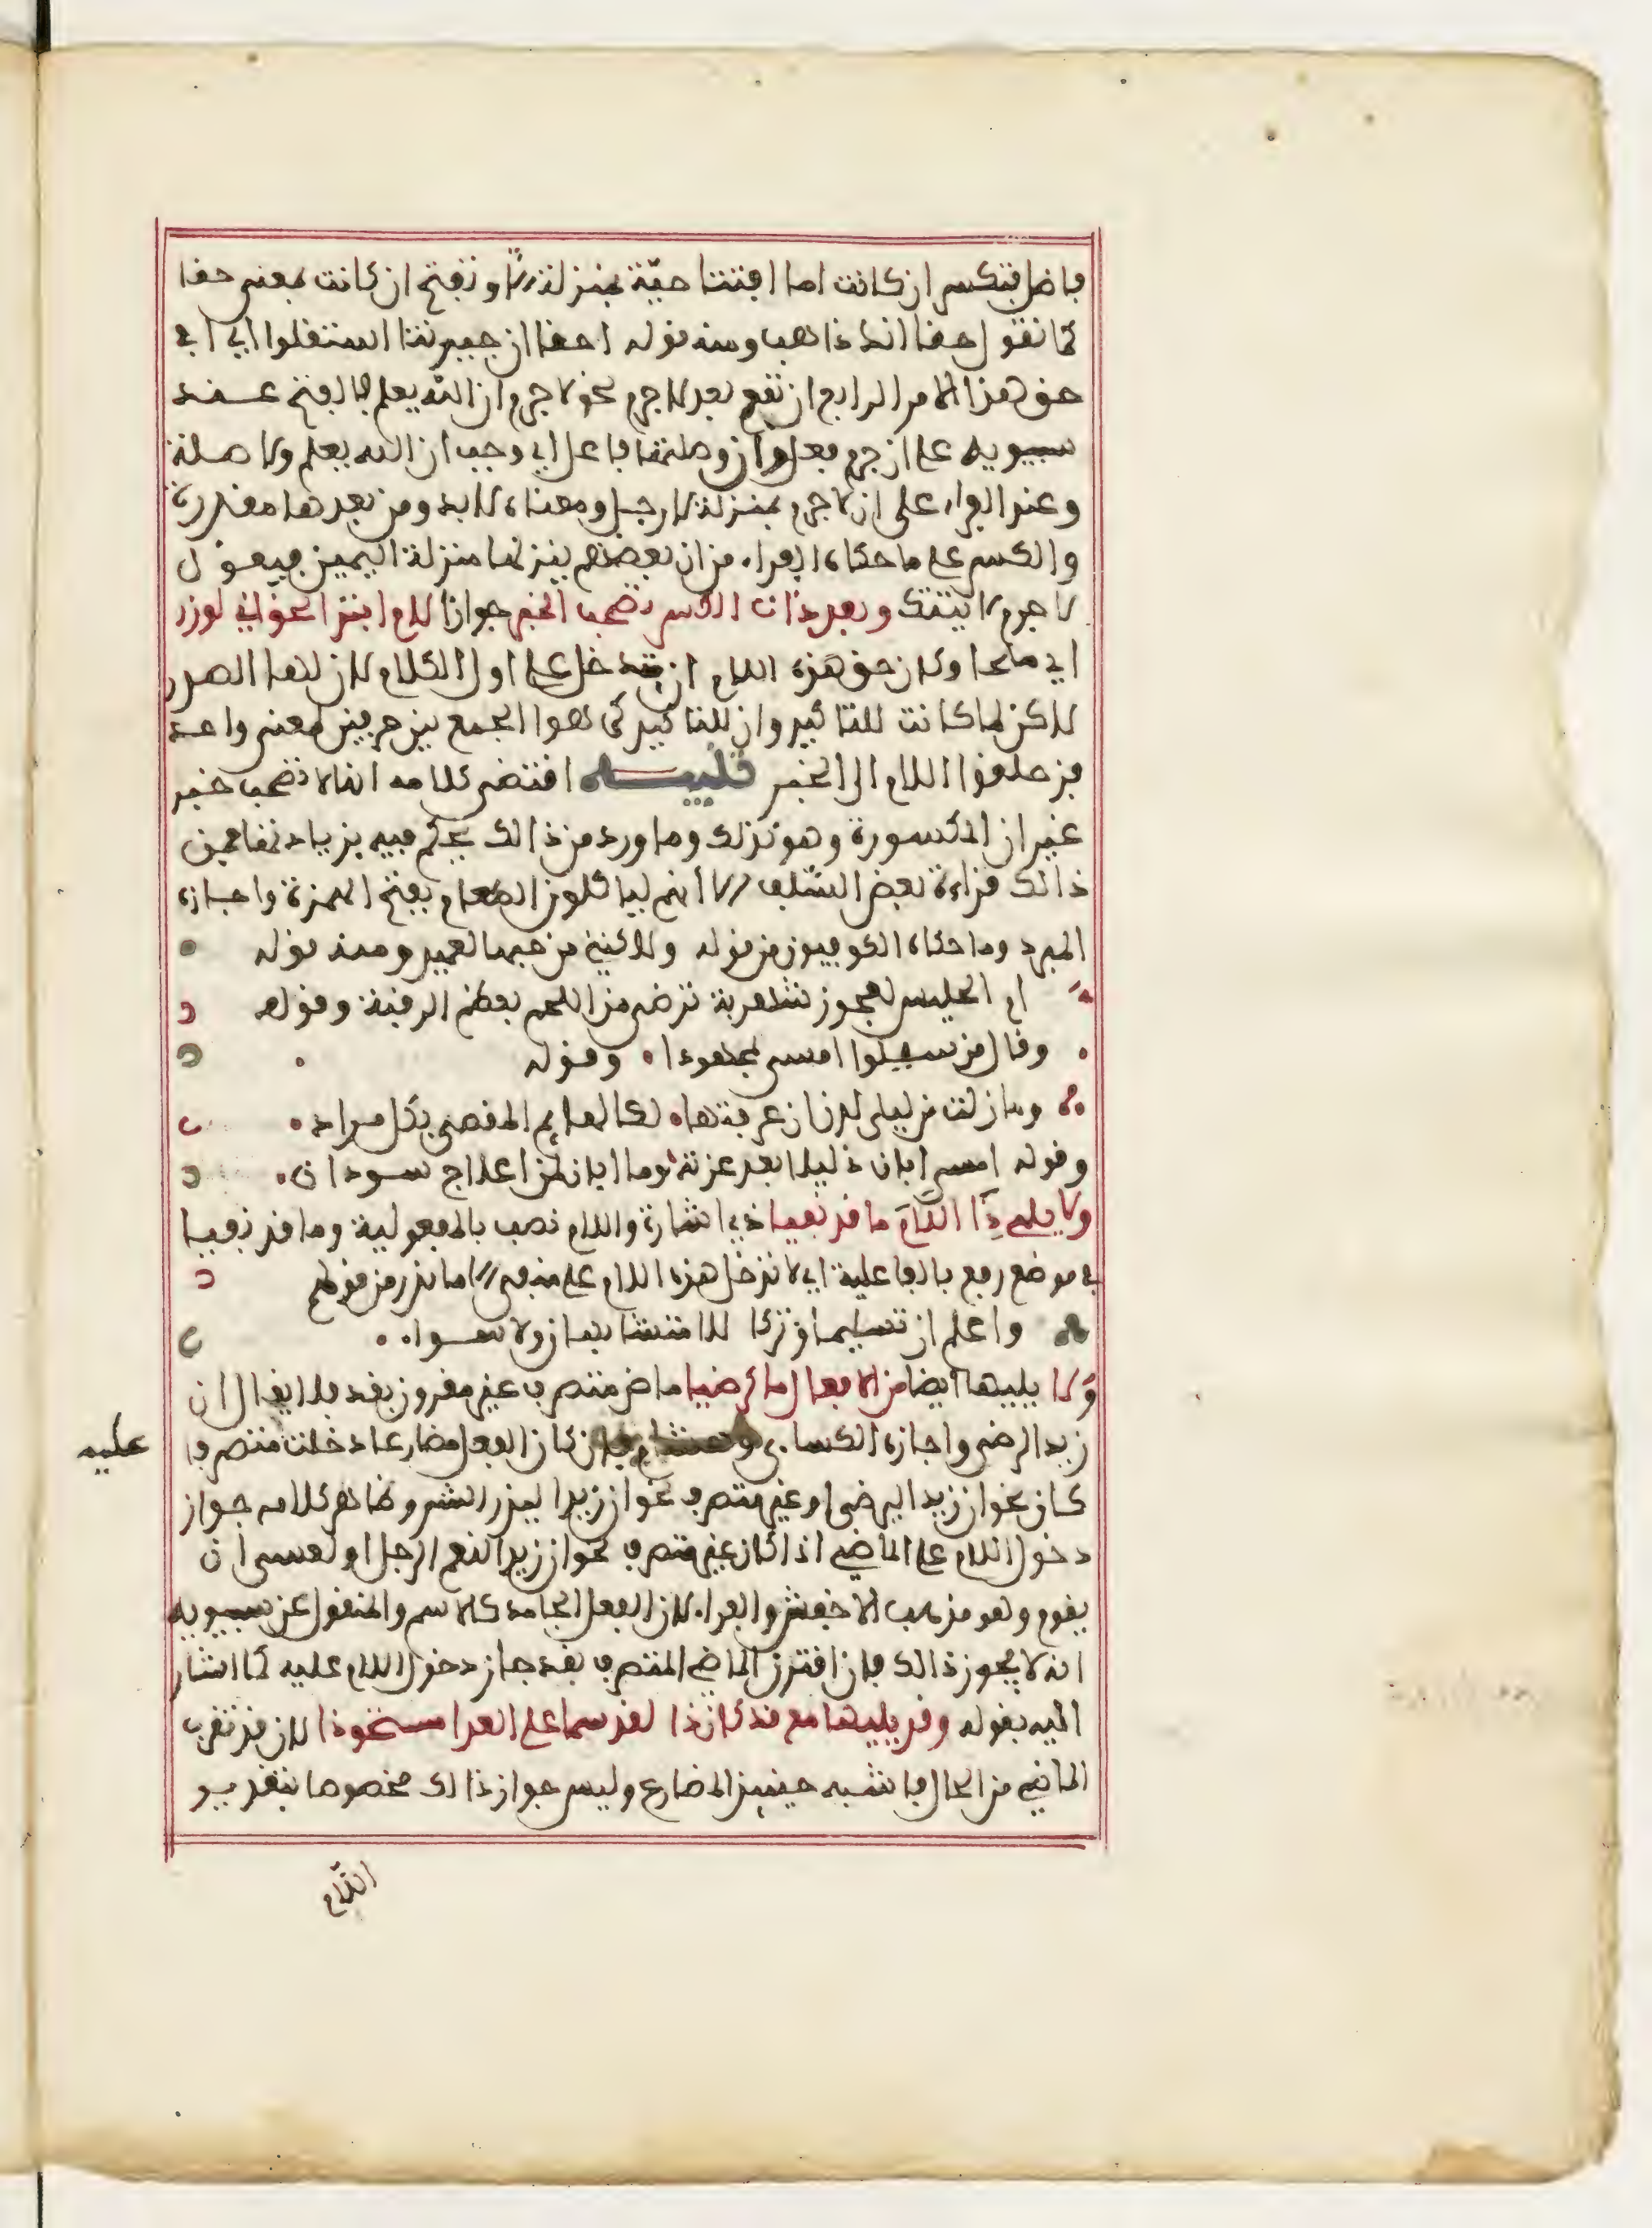 فاضل فتكسر ان كانت اما افتتاحية بمنزلة الا وتفتح ان كانت بمعنى حقا
كما تقول حقا انك ذاهب ومنه قوله احقا ان جيرتنا استقلوا اي افي
حق هذا الامر الرابع ان تقع بعد لا جرم نحو لا جرم ان الله يعلم فالفتح عند
سيبويه على ان جرم فعل وان وصلتها فاعل اي وجب ان الله يعلم ولا صلة
وعند الفراء على ان لا جرم بمنزلة لا رجل ومعناه لا بد ومن بعدها مقدرة
والكسر على ما حكاه الفراء من ان بعضهم ينزلها منزلة اليمين فيقول
لا جرم لاتينك وبعد ذات الكسر تصحب الخبر جوازا لام ابتداء نحو اني لوزر
اي ملجا وكان حق هذه اللام ان تدخل على اول الكلام لان لها الصدر
لاكن لما كانت للتاكيد وان للتاكيد كرهوا الجمع بين حرفين لمعنى واحد
فزحلقوا اللام الى الخبر تنبيه اقتضى كلامه انها لا تصحب خبر
غير ان المكسورة وهو كذلك وما ورد من ذالك يحكم فيه بزيادتها فمن
ذالك قراءة بعض السلف الا أنهم لياكلون الطعام بفتح الهمزة واجازه
المبرد وما حكاه الكوفيون من قوله ولكنني من حبها لعميد ومنه قوله
ام الحليس لعجوز شهربة ترضى من اللحم بعظم الرقبة وقوله
وقال من سيلوا امسى لمجهودا وقوله
وما زلت من ليلى لدن ان عرفتها لكالهايم المقصى بكل مراد
وقوله امسى ابان ذليلا بعد عزته وما ابان لمن اعلاج سودان
ولا يلي ذي اللام ما قد نفيا ذي اشارة واللام نصب بالمفعولية وما قد نفيا
في موضع رفع بالفاعلية اي لا تدخل هذه اللام على منفي الا ما ندر من قولهم
واعلم ان تسليما وتركا للا متشابهان ولا سواء
ولا يليها ايضا من الافعال ما كرضيا ماض متصرف غير مقرون بقد فلا يقال ان
زيدا لرضى واجازه الكسائى وهشام فان كان الفعل مضارعا دخلت متصرفا
عليه
كان نحو ان زيدا ليرضى او غير متصرف نحو ان زيدا ليذر الشر وظاهر كلامه جواز
دخول اللام على الماضي اذا كان غير متصرف نحو ان زيدا لنعم الرجل او لعسى ان
يقوم وهو مذهب الاخفش والفراء لان الفعل الجامد كالاسم والمنقول عن سيبويه
انه لا يجوز ذالك فان اقترن الماضي المتصرف بقد جاز دخول اللام عليه كما اشار
اليه بقوله وقد يليها مع قد كان ذا لقد سما على العدا مستحوذا لان قد تقرب
الماضي من الحال فاشبه حينيذ المضارع وليس جواز ذالك مخصوصا بتقدير
اللام